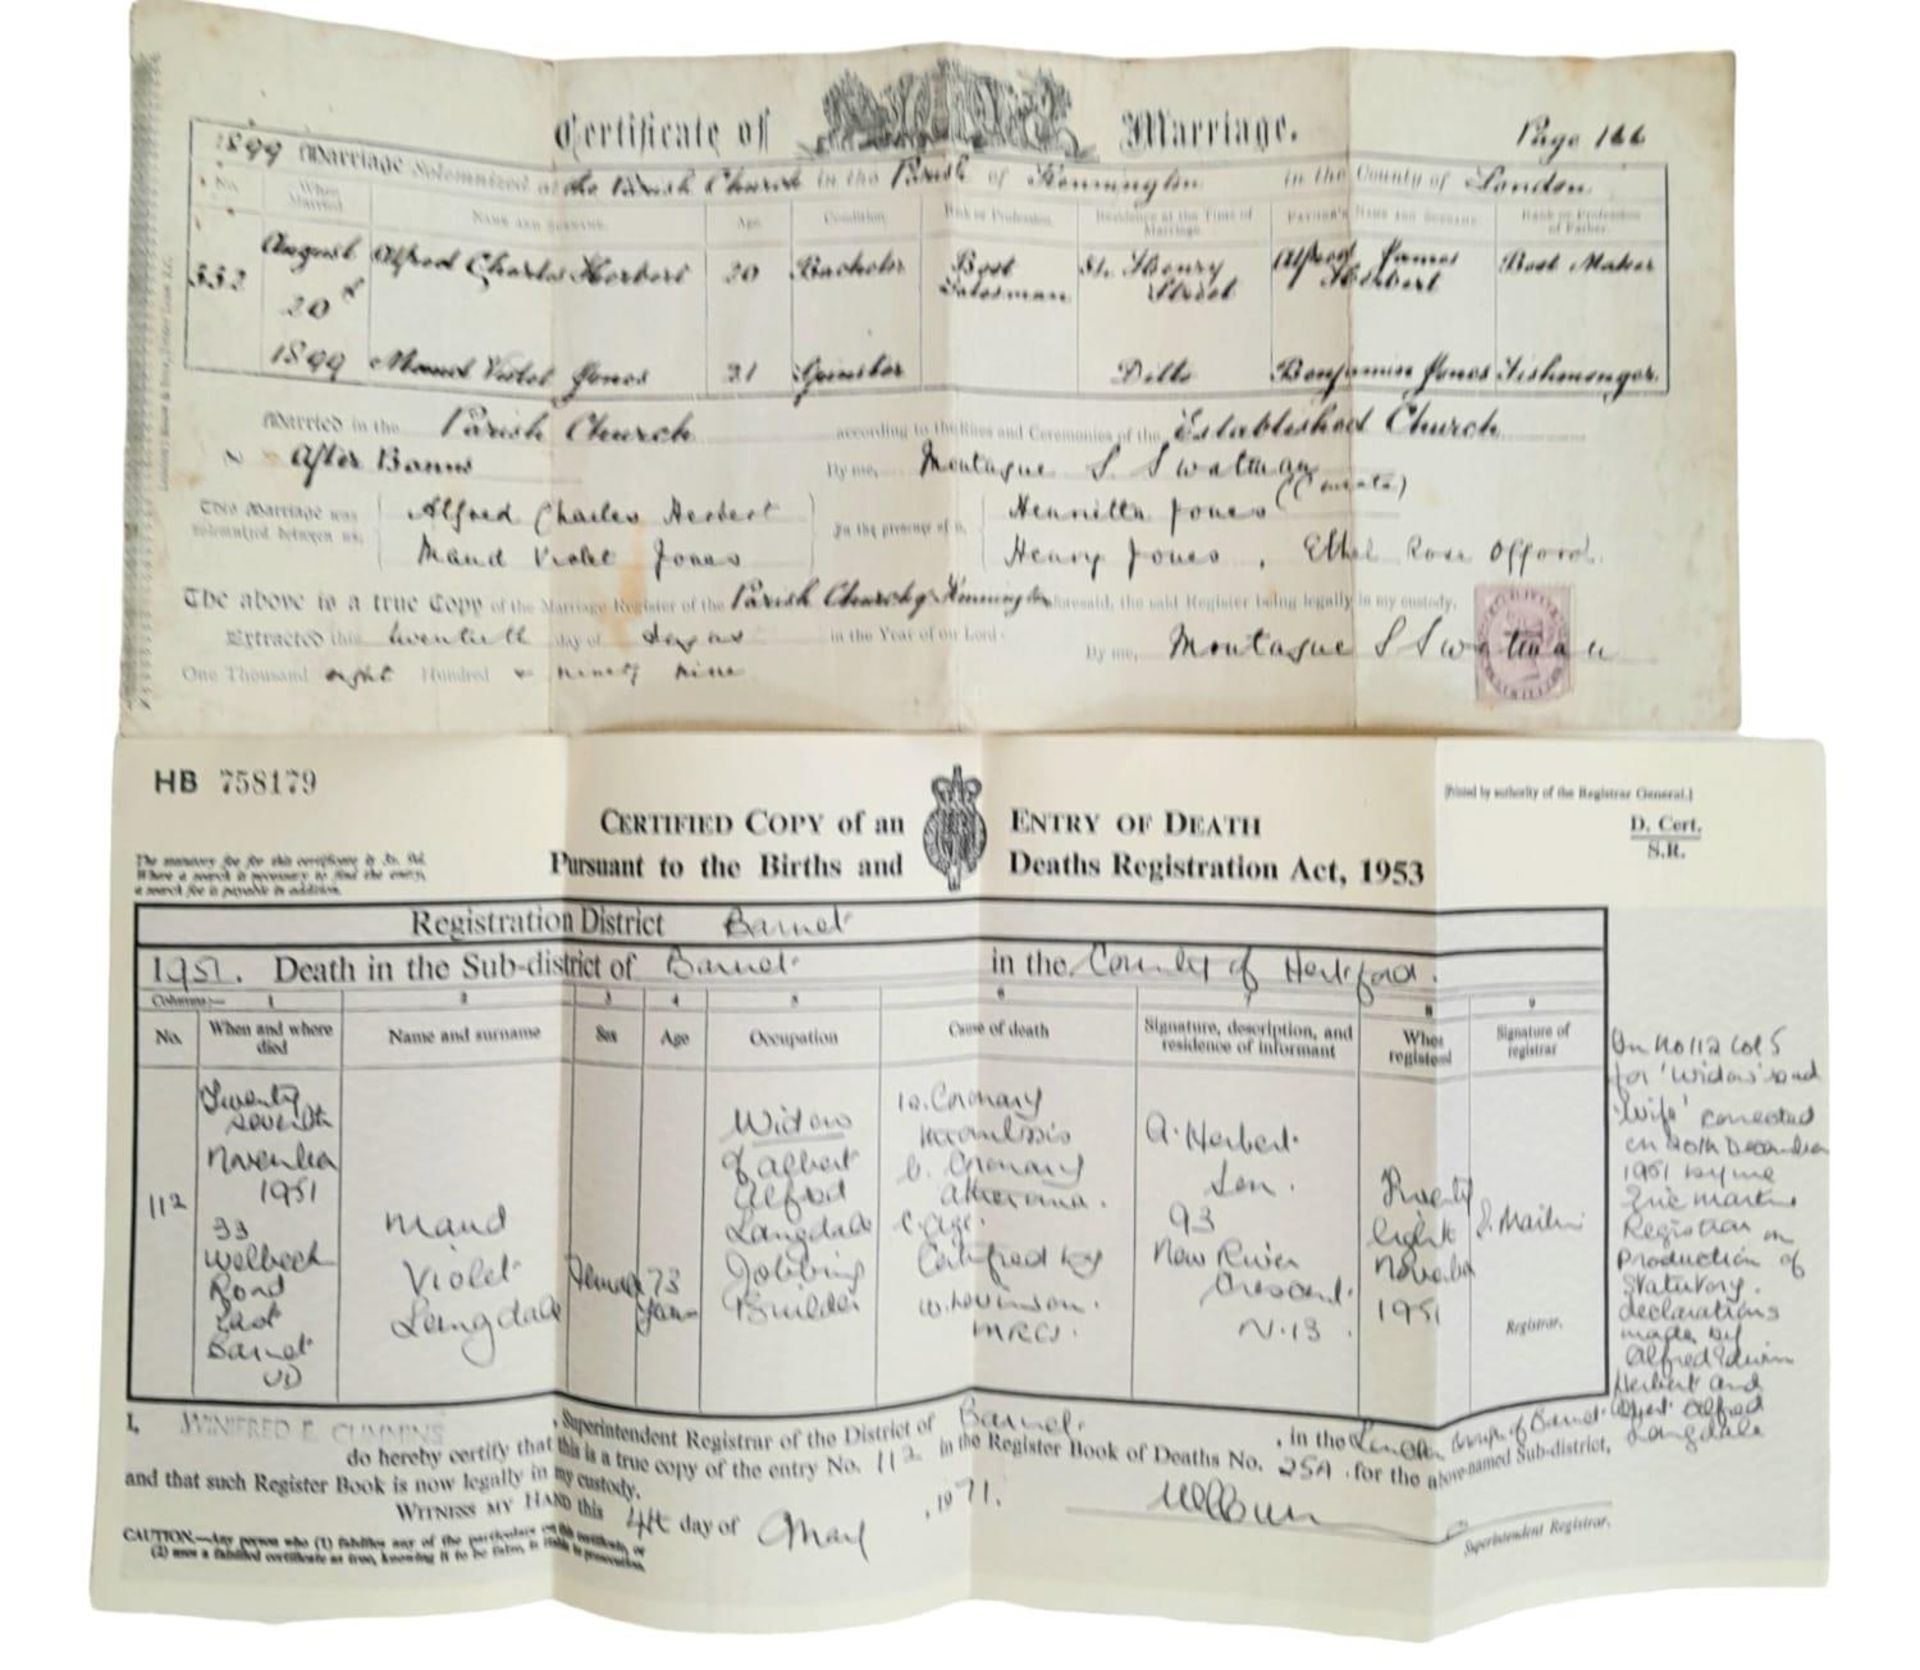 Certificate of Marriage.
Page 166
1899 Marriage Solemnized at the Parish Church in the Parish of Kennington in the County of London
No. When Married. Name and Surname. Age. Condition. Rank or Profession. Residence at the Time of Marriage. Father's Name and Surname. Rank or Profession of Father.
332 August 20th 1899 Alfred Charles Herbert 20 Bachelor Boot Salesman Henry Street Alfred James Herbert Boot Maker
Maud Violet Jones 21 Spinster Ditto Benjamin Jones Fishmonger
Married in the Parish Church according to the Rites and Ceremonies of the Established Church
After Banns By me, Montague S. Swatman
(Curate)
This Marriage was solemnized between us, Alfred Charles Herbert In the presence of us, Henrietta Jones
Maud Violet Jones Henry Jones, Ethel Rose Offord.
The above is a true Copy of the Marriage Register of the Parish Church of Kennington aforesaid, the said Register being legally in my custody.
Extracted this twentieth day of August in the Year of our Lord
By me, Montague S Swatman
One Thousand eight Hundred & ninety nine
HB 758179
[Printed by authority of the Registrar General.]
CERTIFIED COPY of an ENTRY OF DEATH
D. Cert.
S.R.
Pursuant to the Births and Deaths Registration Act, 1953
The statutory fee for this certificate is
Where a search is necessary to find the entry,
a search fee is payable in addition.
Registration District Barnet
1951. Death in the Sub-district of Barnet in the County of Hertford.
Columns:— 1 2 3 4 5 6 7 8 9
No. When and where died Name and surname Sex Age Occupation Cause of death Signature, description, and residence of informant When registered Signature of registrar
112
Twenty
seventh
November
1951
33
Welbeck
Road
East
Barnet
UD
Maud
Violet
Langdale
Female
73
years
Widow
of Albert
Alfred
Langdale
Jobbing
Builder
1a. Coronary
thrombosis
b. Coronary
atheroma.
c. Age.
Certified by
MRCS.
A. Herbert.
Son.
93
New River
Crescent.
N.13.
Twenty
eight
November
1951
Martin
Registrar.
On No 112 Col 5
for 'Widow' read
'Wife' corrected
on 20th December
1951 by me
Eric Martin
Registrar on
Production of
Statutory
declarations
made by
Alfred Edwin
Herbert and
Albert Alfred
Langdale
I, WINIFRED E. CUMMINS, Superintendent Registrar of the District of Barnet, in the London Borough of Barnet
do hereby certify that this is a true copy of the entry No. 112 in the Register Book of Deaths No. 25A for the above-named Sub-district,
and that such Register Book is now legally in my custody.
WITNESS MY HAND this 4th day of May, 1971.
Superintendent Registrar.
CAUTION.—Any person who (1) falsifies any of the particulars on this certificate, or
(2) uses a falsified certificate as true, knowing it to be false, is liable to prosecution.